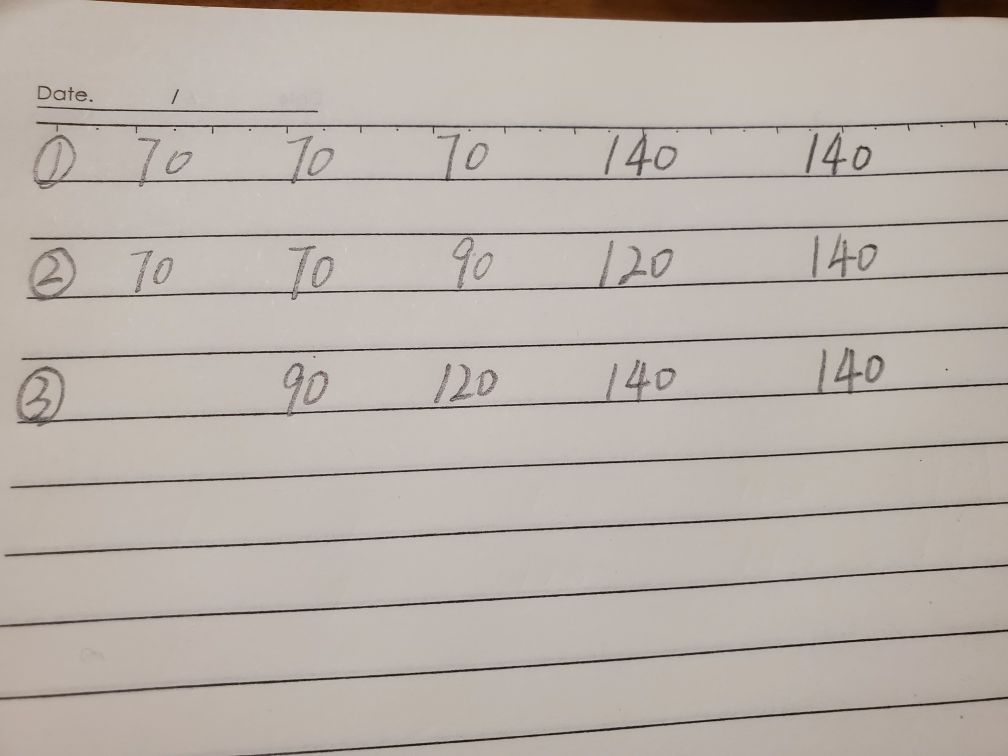 Date. /
① 70 70 70 140 140
② 70 70 90 120 140
③ 90 120 140 140